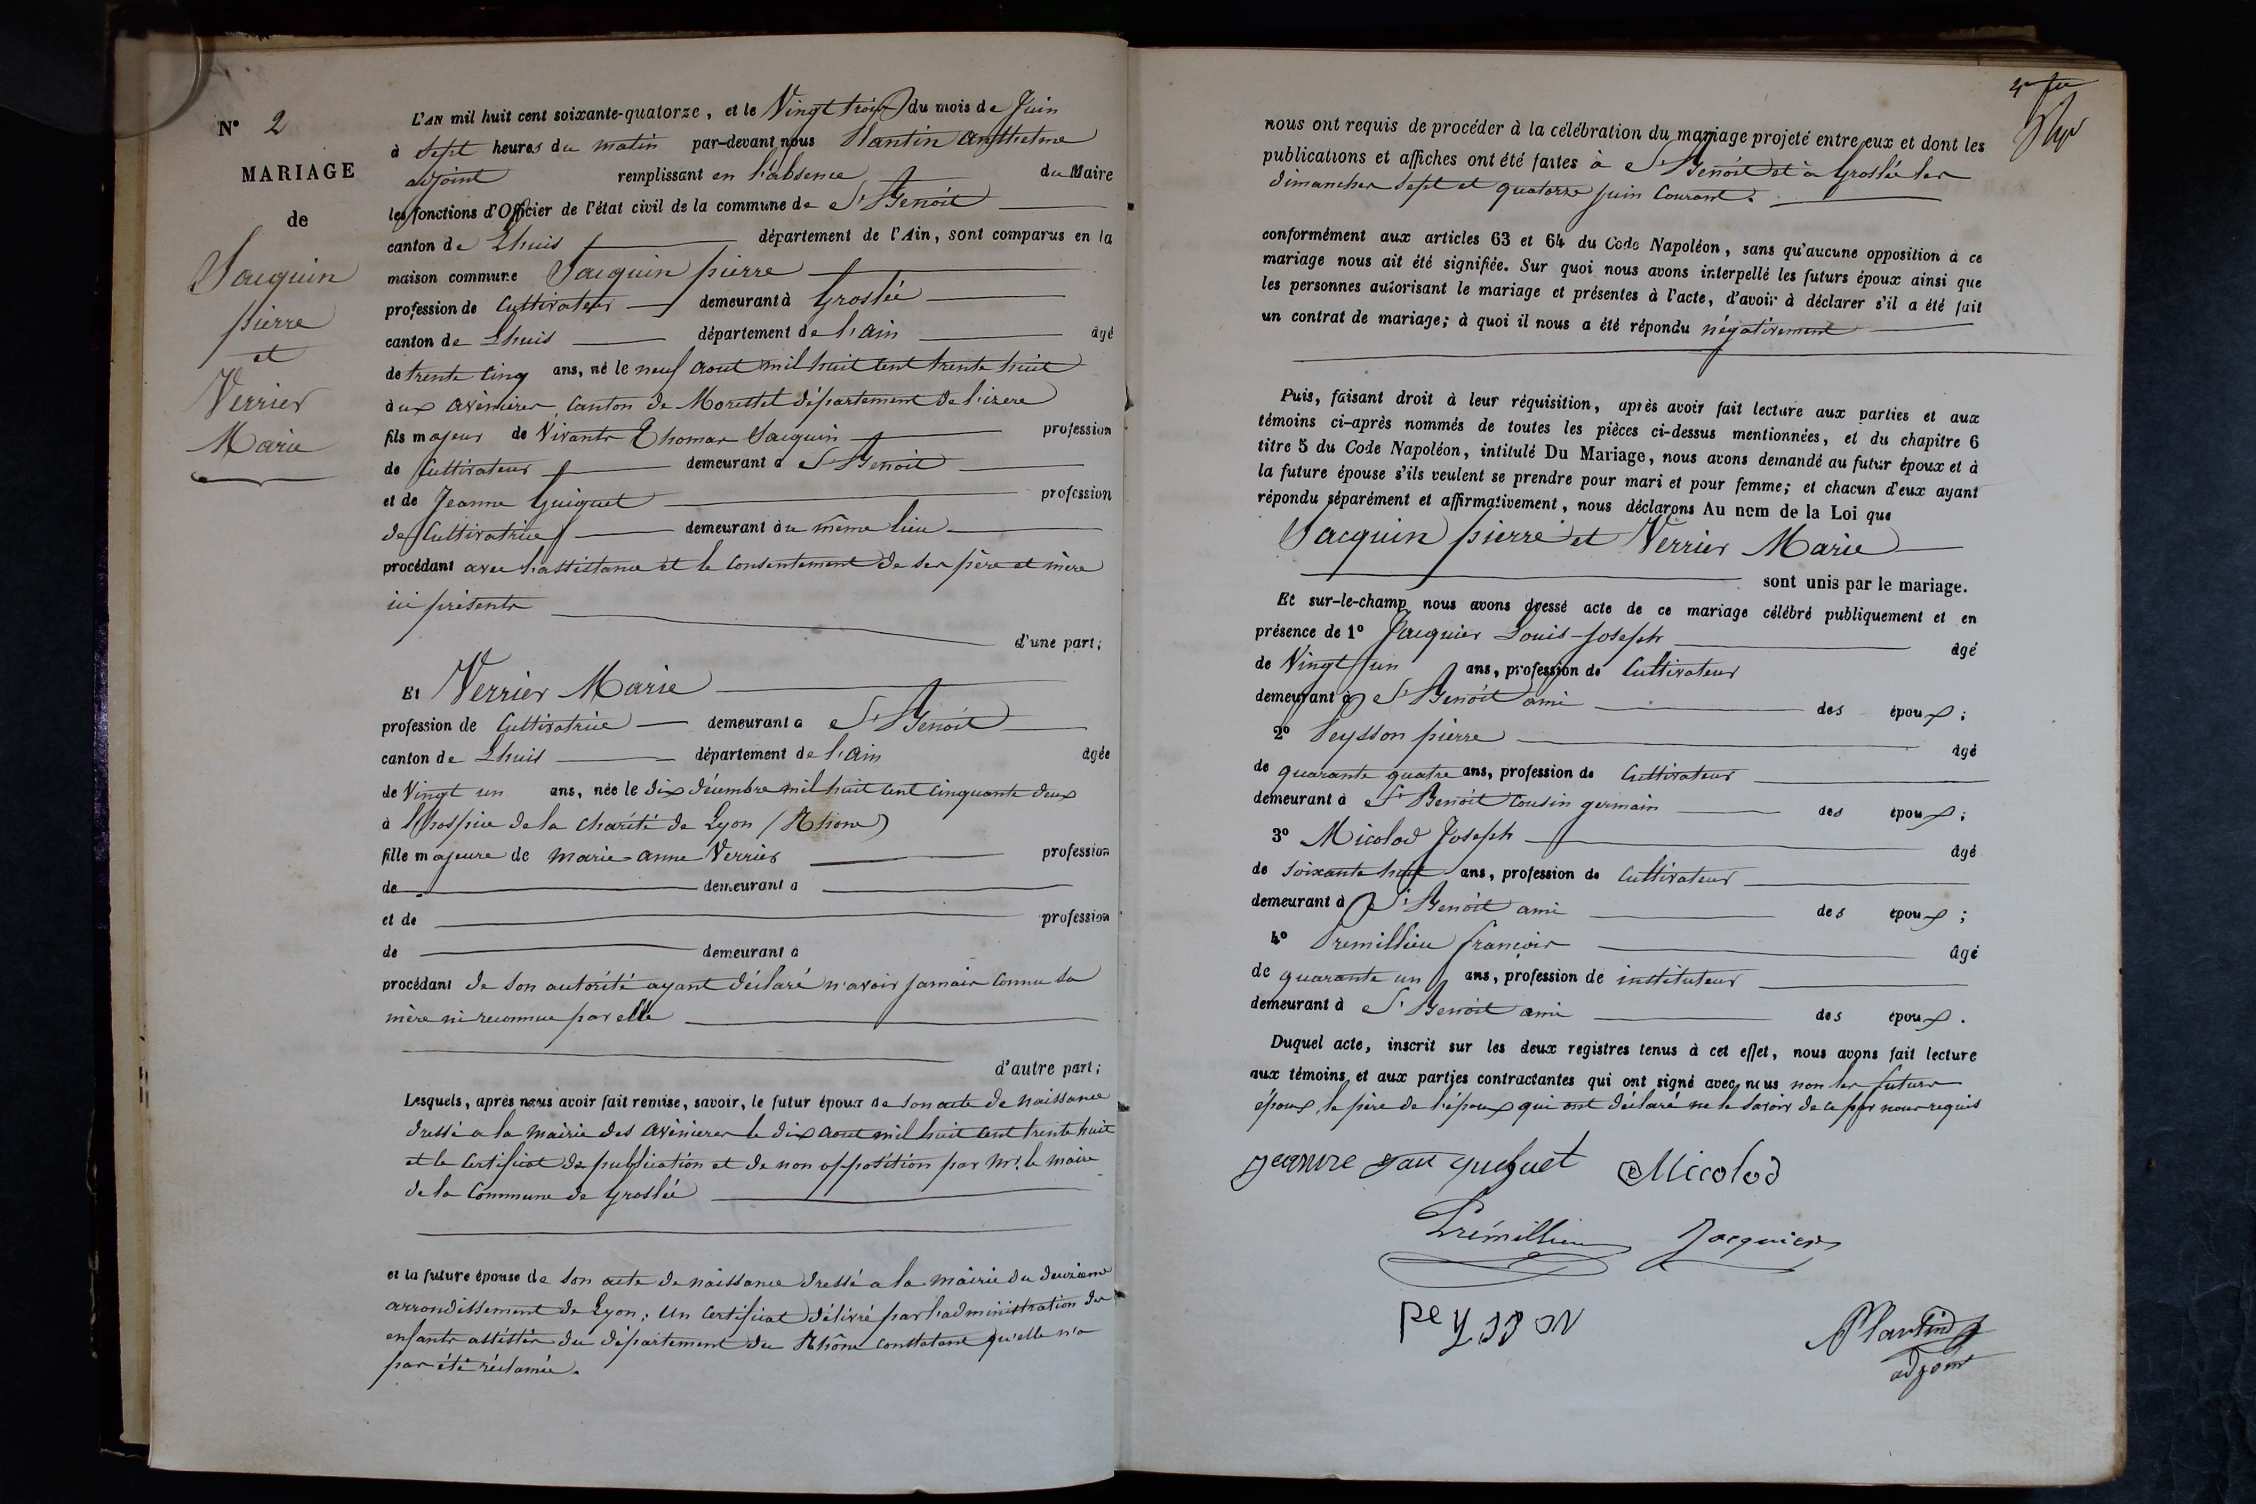 N° 2
MARIAGE
de
Jacquin
pierre
et
Verrier
Marie
L'AN mil huit cent soixante-quatorze, et le Vingt trois du mois de Juin
à Sept heures du matin par-devant nous Plantin Anthelme
adjoint remplissant en l'absence du Maire
les fonctions d'Officier de l'état civil de la commune de St Benoit
canton de Lhuis département de l'Ain, sont comparus en la
maison commune Jacquin pierre
profession de Cultivateur demeurant à Groslée
canton de Lhuis département de l'ain âgé
de trente cinq ans, né le neuf aout mil huit cent trente huit
aux avenieres, canton de Morestel département de l'izere
fils majeur de Vivants Thomas Jacquin profession
de Cultivateur demeurant à St Benoit
et de Jeanne Guiguet profession
de Cultivatrice demeurant au même lieu
procédant avec l'assistance et le consentement de ses père et mère
ici présents
d'une part;
Et Verrier Marie
profession de Cultivatrice demeurant à St Benoit
canton de Lhuis département de l'ain âgée
de Vingt un ans, née le dix décembre mil huit cent cinquante deux
à l'hospice de la charité de Lyon (Rhone)
fille majeure de marie-anne Verrier profession
de demeurant à
et de profession
de demeurant à
procédant de son autorité ayant déclaré n'avoir jamais connu sa
mère ni reconnue par elle
d'autre part;
Lesquels, après nous avoir fait remise, savoir, le futur époux de son acte de naissance
dressé a la mairie des avenieres le dix aout mil huit cent trente huit
et le certificat de publication et de non opposition par Mr. le maire
de la Commune de Groslée
et la future épouse de son acte de naissance dressé a la mairie du deuxieme
arrondissement de Lyon; un certificat délivré par l'administration des
enfants assistés du département du Rhône constatant qu'elle n'a
pas été réclamée.
nous ont requis de procéder à la célébration du mariage projeté entre eux et dont les
publications et affiches ont été faites à St Benoit et à Groslée les
dimanches sept et quatorze juin courant.
conformément aux articles 63 et 64 du Code Napoléon, sans qu'aucune opposition à ce
mariage nous ait été signifiée. Sur quoi nous avons interpellé les futurs époux ainsi que
les personnes autorisant le mariage et présentes à l'acte, d'avoir à déclarer s'il a été fait
un contrat de mariage; à quoi il nous a été répondu négativement
Puis, faisant droit à leur réquisition, après avoir fait lecture aux parties et aux
témoins ci-après nommés de toutes les pièces ci-dessus mentionnées, et du chapitre 6
titre 5 du Code Napoléon, intitulé Du Mariage, nous avons demandé au futur époux et à
la future épouse s'ils veulent se prendre pour mari et pour femme; et chacun d'eux ayant
répondu séparément et affirmativement, nous déclarons Au nom de la Loi que
Jacquin pierre et Verrier Marie
sont unis par le mariage.
Et sur-le-champ nous avons dressé acte de ce mariage célébré publiquement et en
présence de 1° Jacquier Louis-Joseph âgé
de Vingt un ans, profession de Cultivateur
demeurant à St Benoit ami des époux;
2° Peysson pierre âgé
de quarante quatre ans, profession de Cultivateur
demeurant à St Benoit Cousin germain des époux;
3° Micolod Joseph âgé
de soixante huit ans, profession de Cultivateur
demeurant à St Benoit ami des époux;
4° Premillieu françois âgé
de quarante un ans, profession de instituteur
demeurant à St Benoit ami des époux.
Duquel acte, inscrit sur les deux registres tenus à cet effet, nous avons fait lecture
aux témoins et aux parties contractantes qui ont signé avec nous non les futurs
époux, le père de l'époux qui ont déclaré ne le savoir de ce par nous requis
Micolod
Prémillieu Jacquier
Peysson
Plantin
adjoint